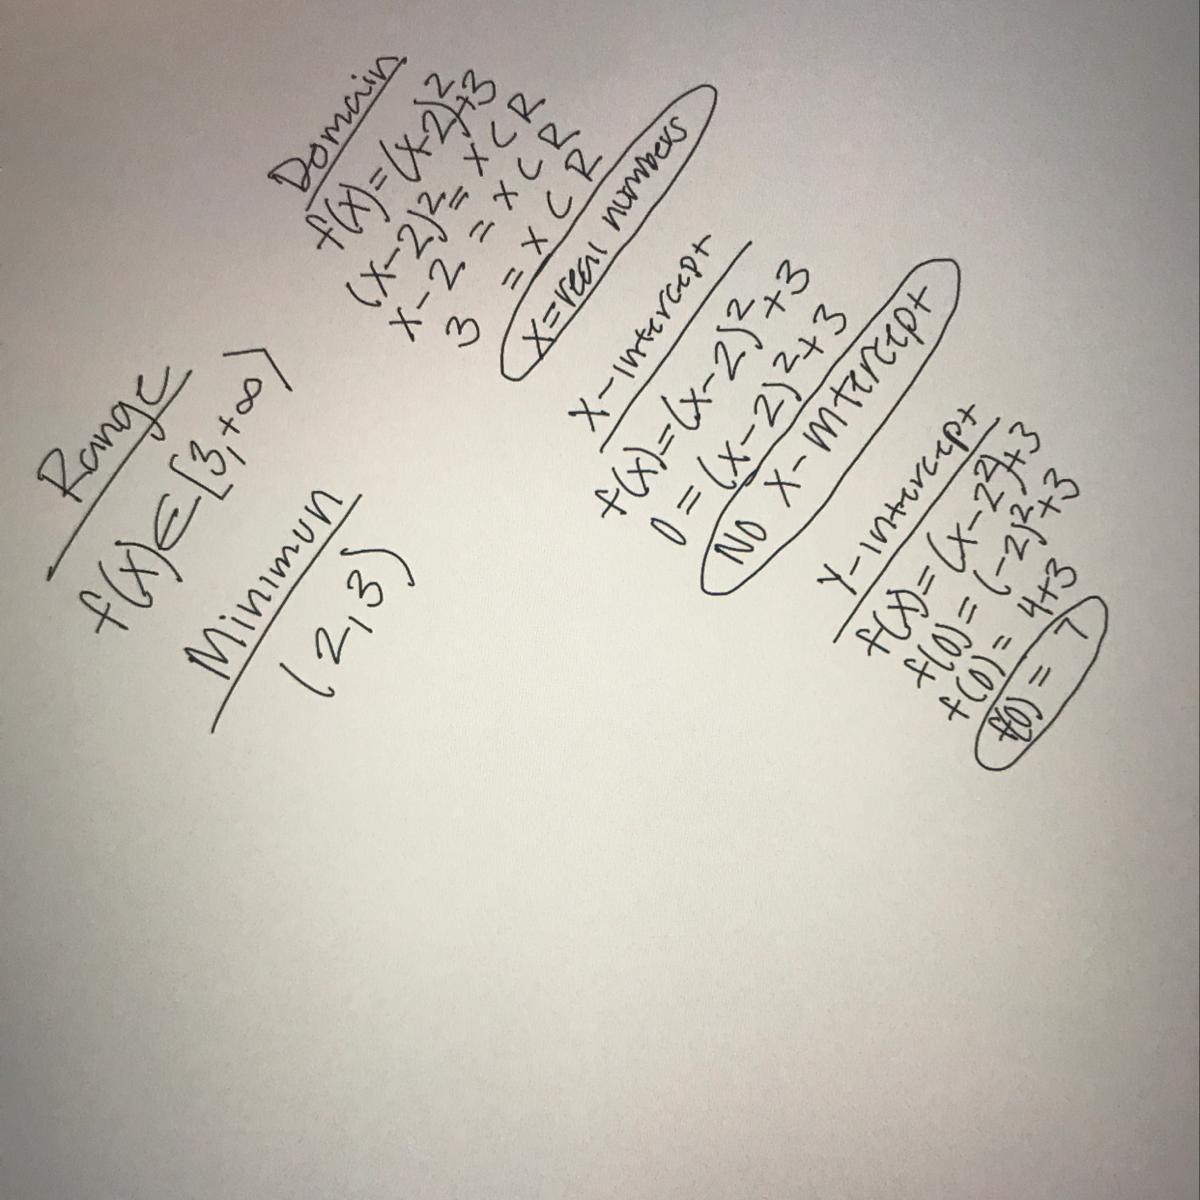 Domain
f(x)=(x-2)²+3
(x-2)² = x ⊂ R
x-2 = x ⊂ R
3 = x ⊂ R
x=real numbers
x-intercept
f(x)=(x-2)²+3
0=(x-2)²+3
No x-intercept
y-intercept
f(x)=(x-2²)+3
f(0)=(-2)²+3
f(0)= 4+3
f(0)= 7
Range
f(x)∈[3,+∞)
Minimun
(2,3)